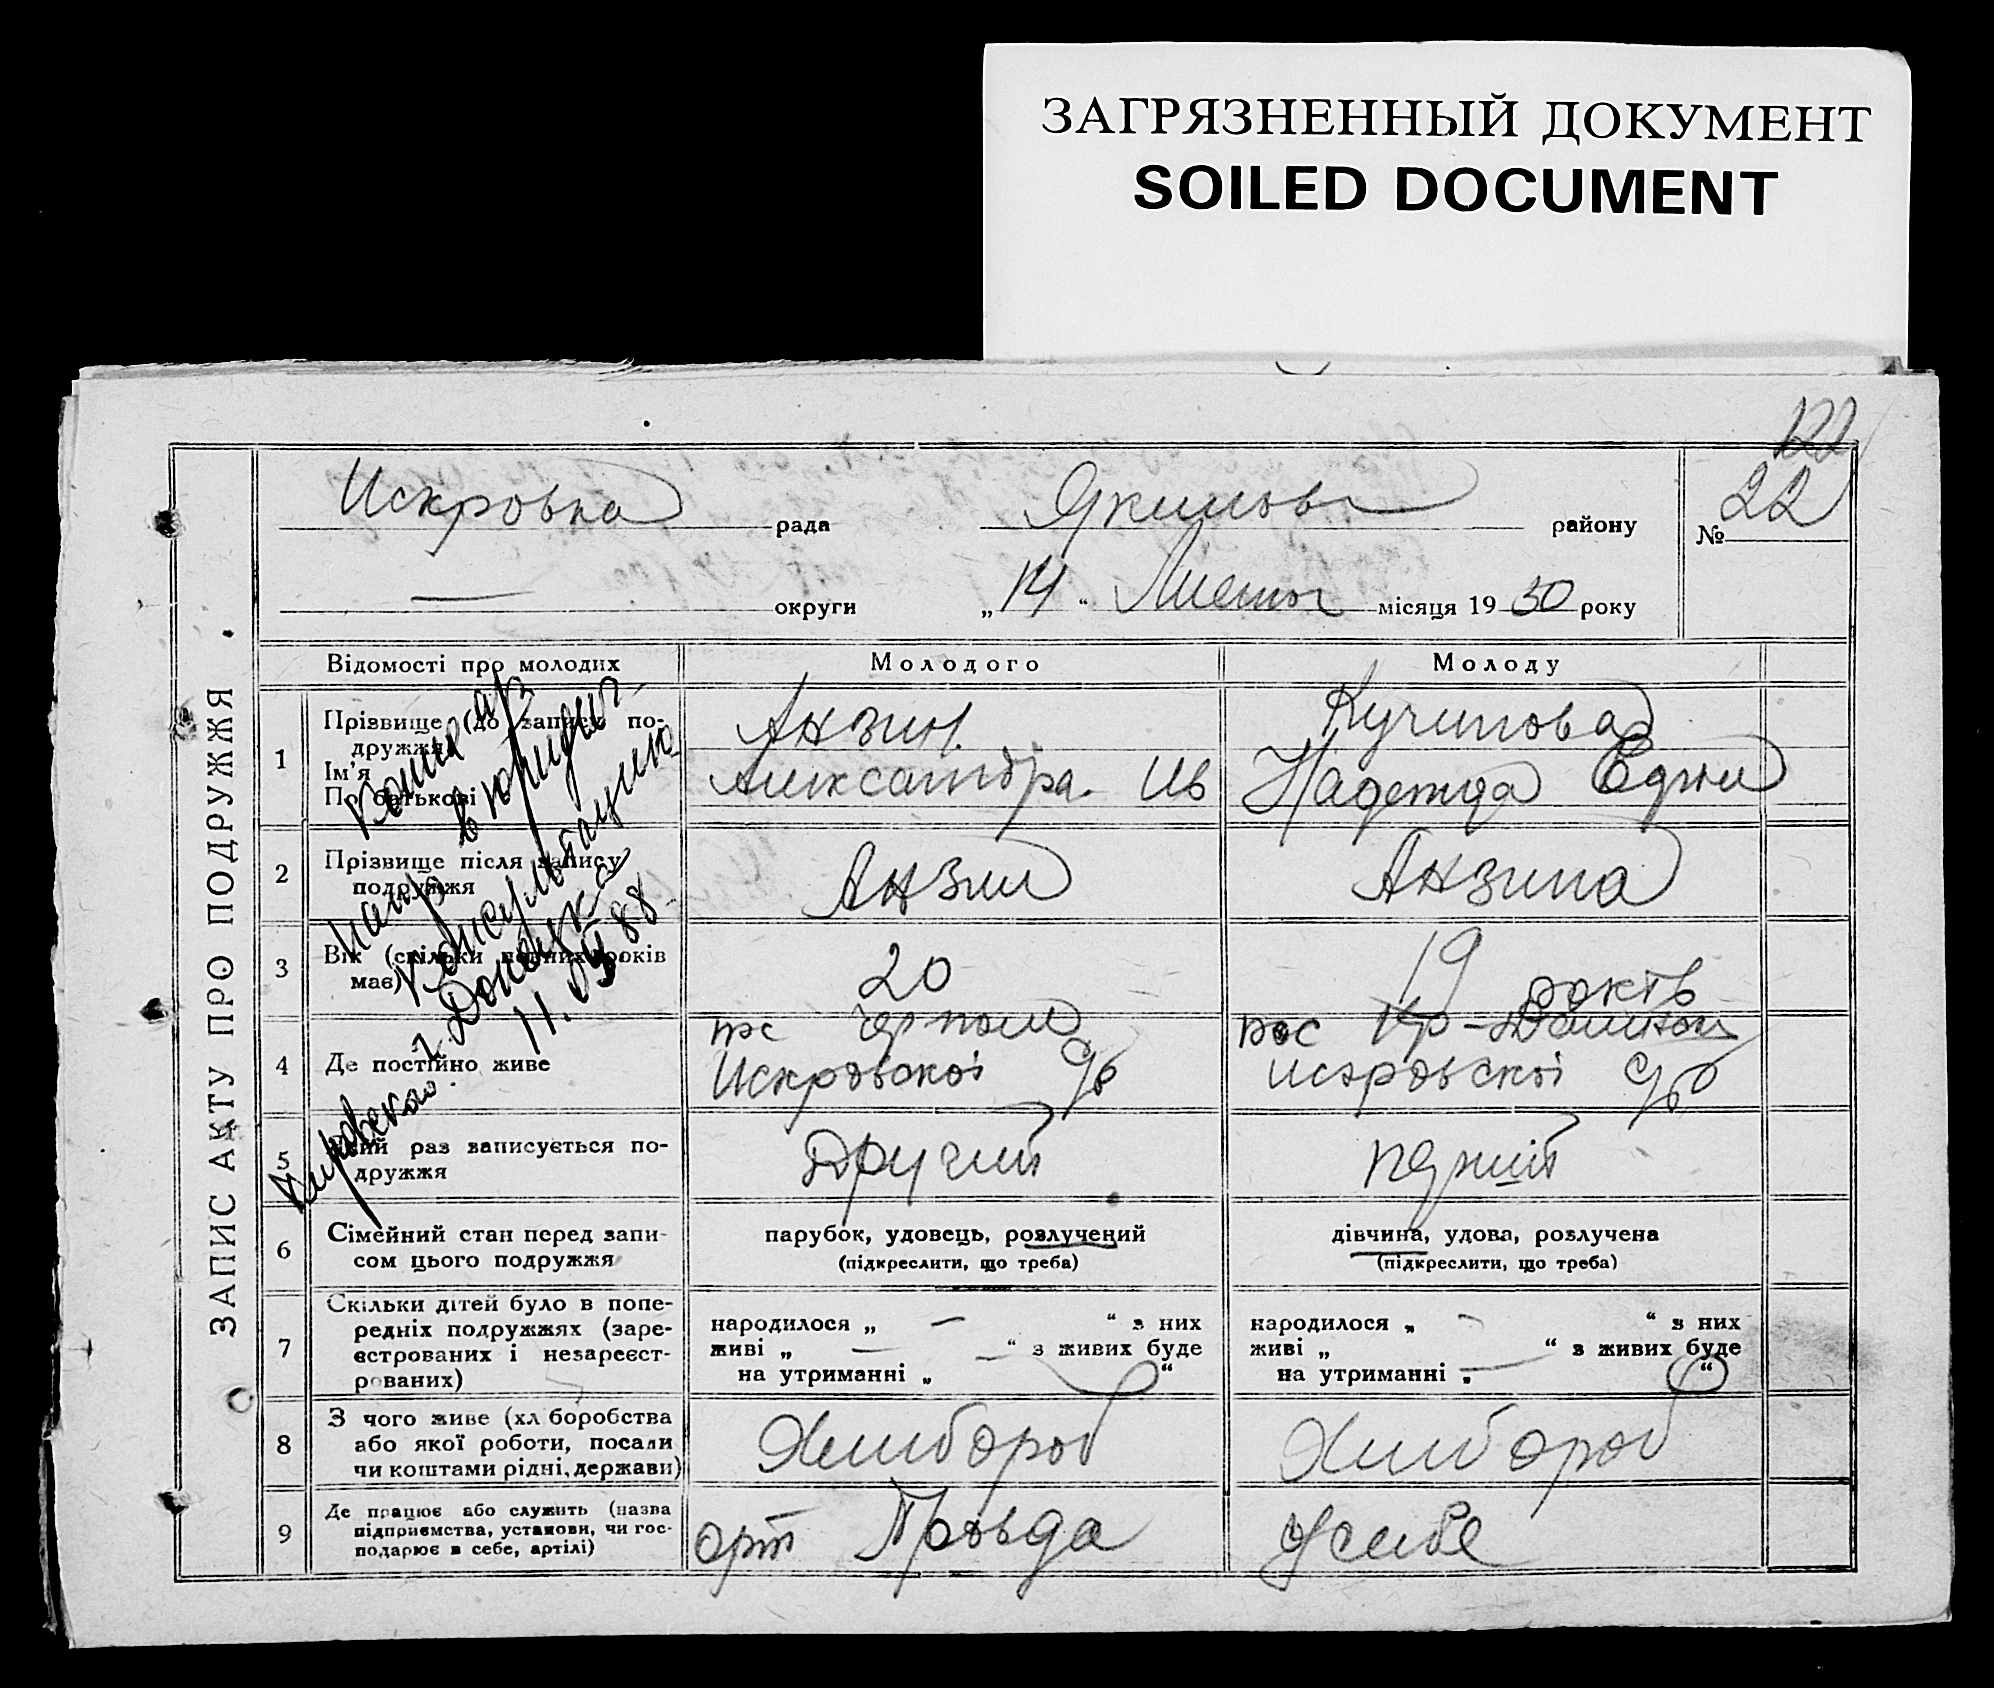 ЗАГРЯЗНЕННЫЙ ДОКУМЕНТ
SOILED DOCUMENT
122
ЗАПИС АКТУ ПРО ПОДРУЖЖЯ
Искровка рада района району № 22
— округи „14“ місяця 1930 року
Відомості про молодих Молодого Молоду
1 Прізвище (до запису подружжя
Ім'я
По батькові
Анзин
Александра Ив
Надежда
2 Прізвище після запису
подружжя
Анзин
Анзина
3 Вік (скільки повних років
має)
20
19
4 Де постійно живе
пос
Искровскоі
пос Кр-
5 Який раз записується по-
дружжя
Другий
6 Сімейний стан перед запи-
сом цього подружжя
парубок, удовець, розлучений
(підкреслити, що треба)
дівчина, удова, розлучена
(підкреслити, що треба)
7 Скільки дітей було в попе-
редніх подружжях (заре-
єстрованих і незареєст-
рованих)
народилося „ — “ з них
живі „ — — “ з живих буде
на утриманні „ “
народилося „ — “ з них
живі „ “ з живих буде
на утриманні „ — “
8 З чого живе (хл боробства
або якої роботи, посади
чи коштами рідні, держави)
Хлибороб
Хлибороб
9 Де працює або служить (назва
підприємства, установи, чи гос-
подарює в себе, артілі)
арт Правда
У себе
в юридич-
консультацию
г. Донецка
11.03 88
Кировского